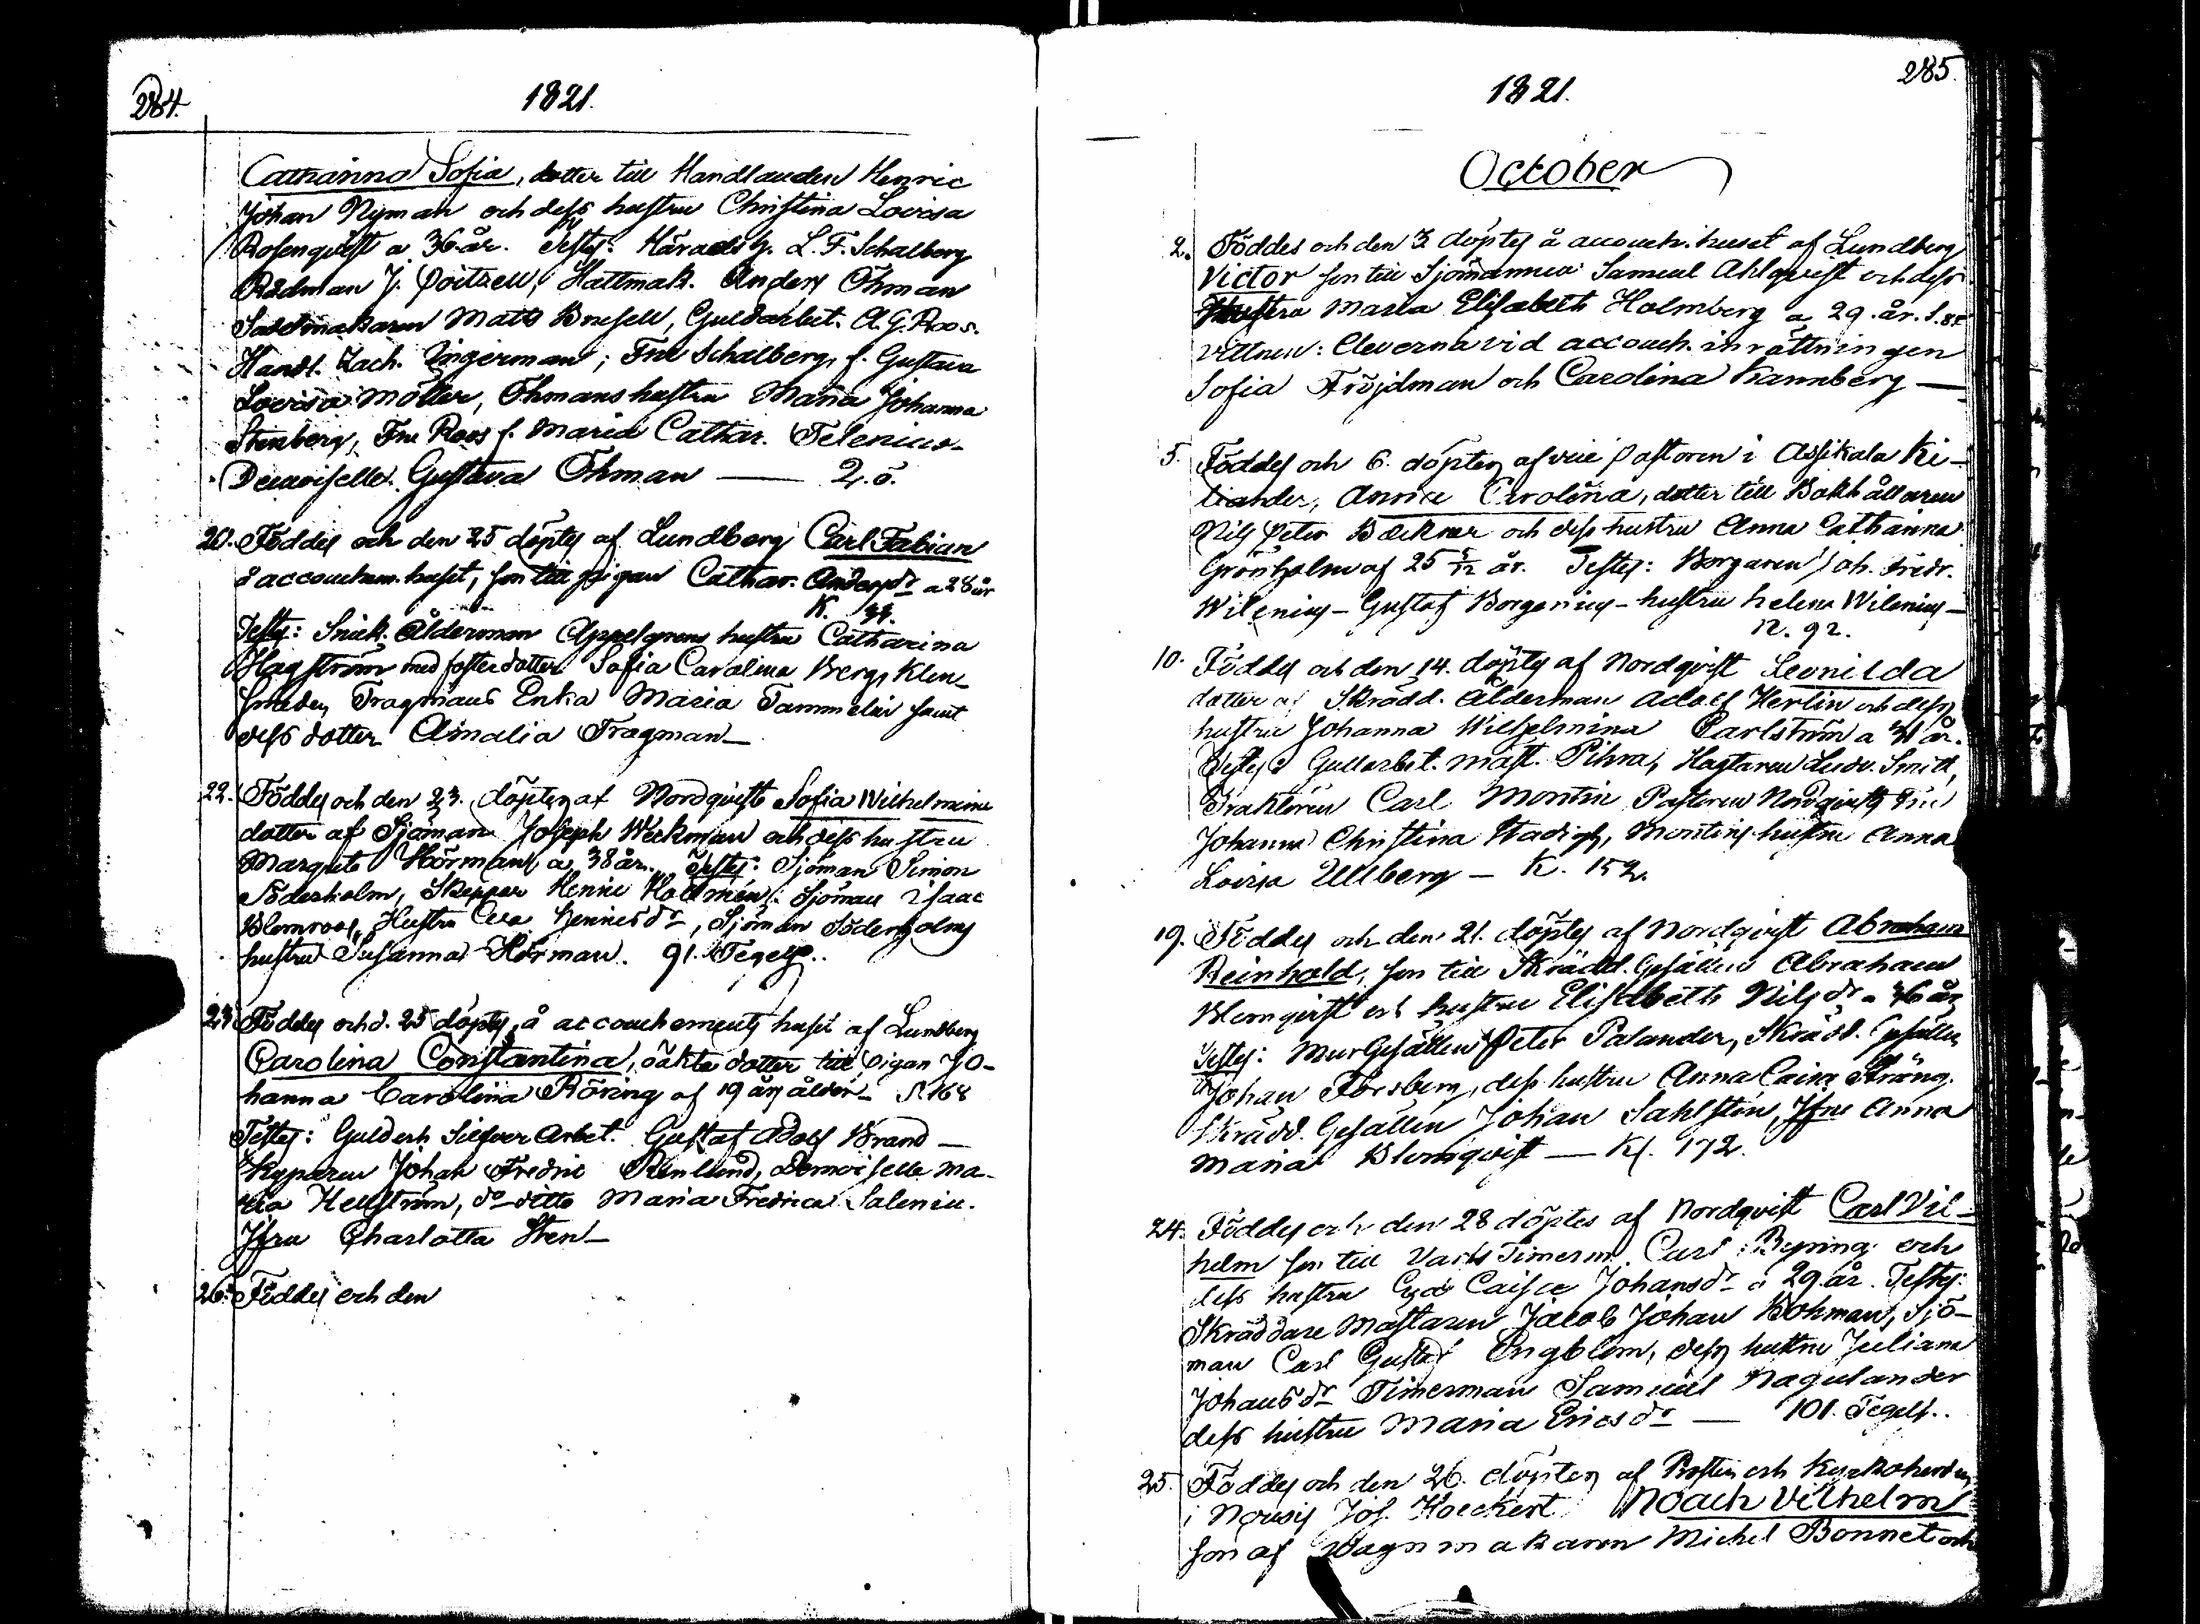 284.
1821.
Catharina Sofia, dotter till Handlanden Henric
Johan Nyman och dess hustru Christina Lovisa
Rosenqvist a 36 år. Testes: Häradsh. L. F. Schalberg
Rådman J. Hattmak. Anders Öhman
Sadelmakaren Matts Brusell, Guldarbet. A. G. Roos.
Handl. Zach. Ingerman; Fru Schalberg, f. Gustava
Lovisa Möller, Öhmans hustru Maria Johanna
Stenberg, Fru Roos f. Maria Cathar. Telenius.
Demoiselle Gustava Öhman — 2. ö.
20. Föddes och den 25 döptes af Lundberg Carl Fabian
å accouchem. huset, son till pigan Cathar. Andersdr a 28 år
K.
Testes: Snick. Ålderman Appelgrens hustru Catharina
Hagström med fosterdotter Sofia Carolina Berg, Klen-
smeden Tragmans Enka Maria Tammelin samt
dess dotter Amalia Tragman —
22. Föddes och den 23. döptes af Nordqvist Sofia Wilhelmina
dotter af Sjöman Joseph Weckman och dess hustru
Margreta Hörman a 38 år. Testes: Sjöman Simon
Söderholm, Skeppar Henric Holmén; Sjöman Isaac
Blomroos, Hustru Eva Henricsdr, Sjöman Söderholms
hustru Susanna Hörman. 91. Tegels..
23 Föddes och d. 25 döptes å accouchements huset af Lundberg
Carolina Constantina, oäkta dotter till Pigan Jo-
hanna Carolina Röring af 19 års ålder — S. 168
Testes: Guld och Silfver Arbet. Gustaf Adolf Brand —
Kyparen Johan Fredric Renlund, Demoiselle Ma-
ria Hellström, do ditto Maria Fredrica Salenia.
Jfru Charlotta Sten —
26. Föddes och den
285.
1821.
October
2. Föddes och den 3 döptes å accouch. huset af Lundberg
Victor son till Sjömannen Samuel Ahlqvist och dess
Hustru Maria Elisabeth Holmberg a 29. år. S. 85
Vittnen: Eleverna vid accouch. inrättningen
Sofia Fröjdman och Carolina Kannberg —
5. Föddes och 6. döptes af vice Pastoren i Assikala Ki-
liander, Annica Carolina, dotter till Bokhållaren
Nils Peter Bäckner och dess hustru Anna Catharina
Grönholm af 25 5/12 år. Testes: Borgaren Joh. Fredr.
Wilenius — Gustaf Borgenius — hustru Helena Wilenius —
N. 92.
10. Föddes och den 14. döptes af Nordqvist Leonilda
dotter af Skrädd. Ålderman Adolf Herlin och dess
hustru Johanna Wilhelmina Carlström a 31 år.
Testes: Gullarbet. mäst. Pihra, Ludv. Smitt,
Traktören Carl Montin Pastoren Nordqvists Fru
Johanna Christina Wadigh, Montins hustru Anna
Lovisa Ullberg — K. 152.
19. Föddes och den 21. döptes af Nordqvist Abraham
Reinhold, son till Skrädd. Gesällen Abraham
Blomqvist och hustru Elisabeth Nilsdr a 36 år
Testes: MurGesällen Peter Palander, Skrädd. Gesällen
Johan Forsberg, dess hustru Anna Caisa Sträng.
Skrädd. Gesällen Johan Sahlstén, Jfru Anna
Maria Blomqvist — Kl. 172.
24. Föddes och den 28 döptes af Nordqvist Carl Vil-
helm son till Varfs Timerm. Carl Byring och
dess hustru Eva Caisa Johansdr a 29 år. Testes:
Skräddare Mästaren Jacob Johan Bohman, Sjö-
man Carl Gustaf Engblom, dess hustru Juliana
Johansdr Timerman Samuel Nagulander
dess hustru Maria Ericsdr — 101. Tegels..
25. Föddes och den 26. döptes af Prosten och Kyrkoherden
i Nousis Joh. Hoeckert Noach Vilhelm
son af Wagnmakaren Michel Bonnet och